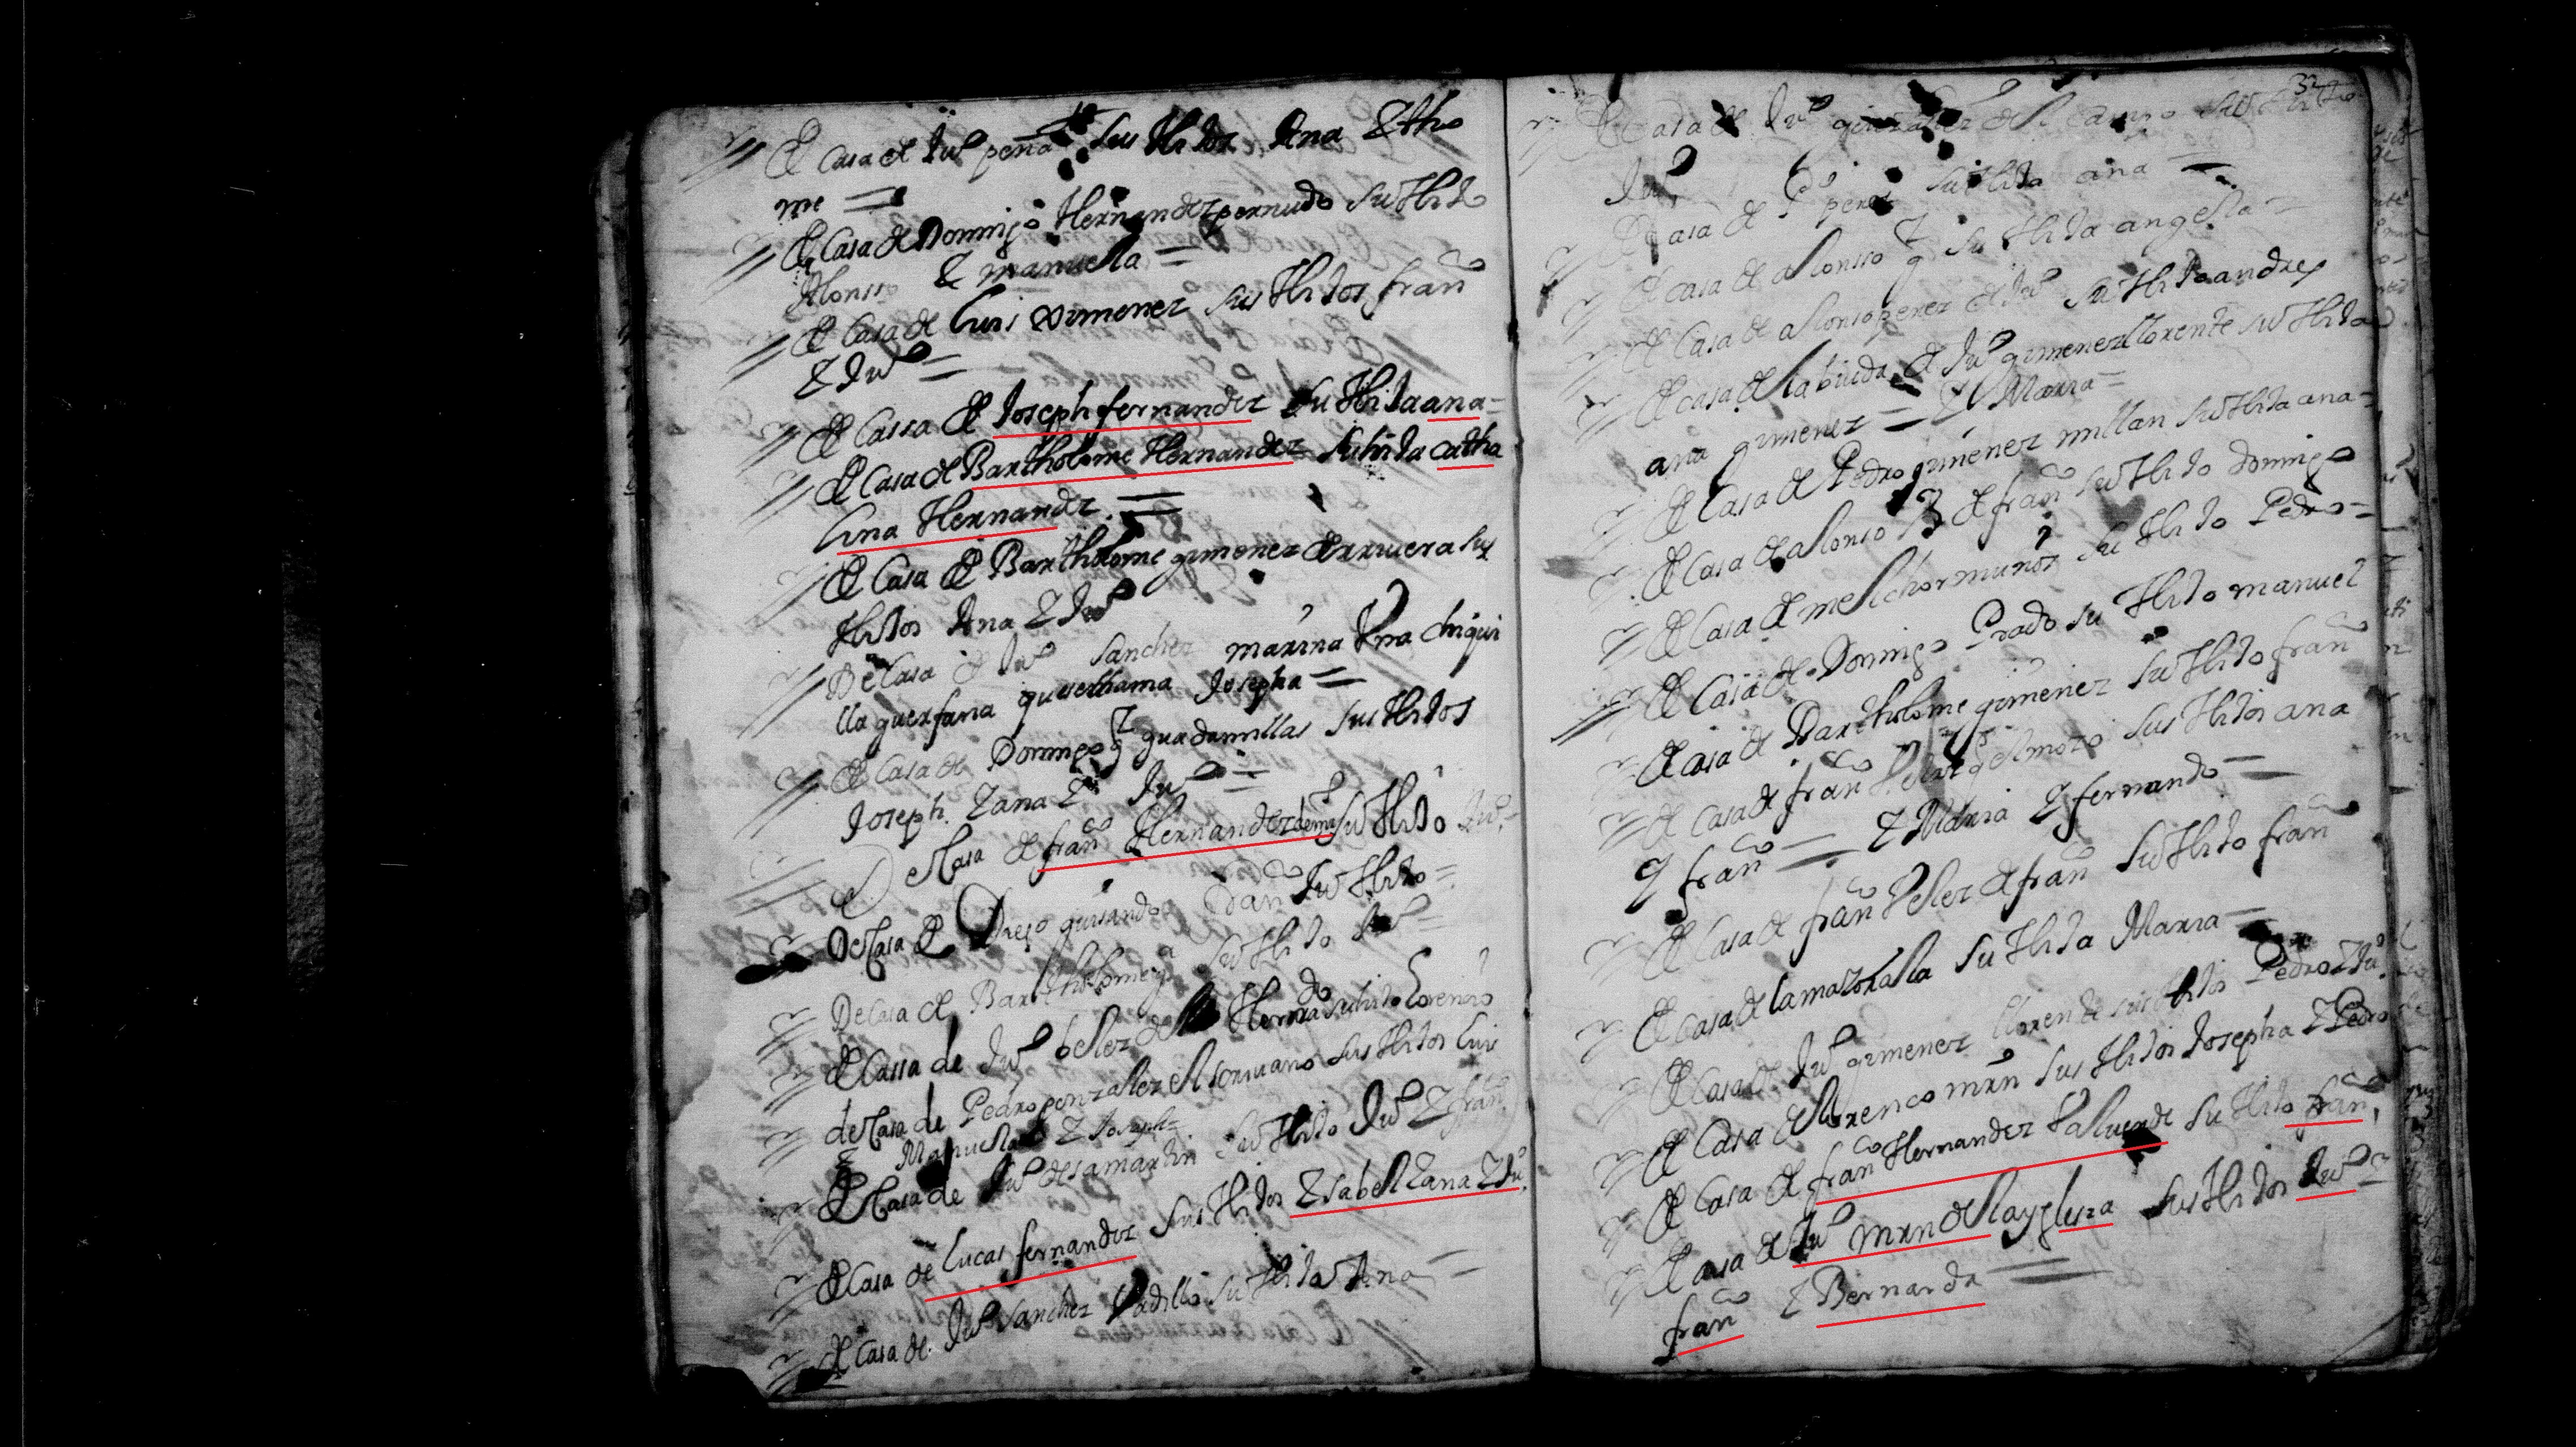 De Casa de Juº peña sus Hijos Ana E tho
me =
De Casa de Domingo Hernandez pernudo su Hijo
Alonso E manuela =
De Casa de Luis Ximenez sus Hijos franco
E Juº =
De Cassa de Joseph fernandez su Hija ana =
De Casa de Bartholome Hernandez su hija catha
lina Hernandz =
De Casa de Bartholome gimenez de rriuera sus
Hijos Ana E Juº
De Casa de Juº Sanchez marina Vna chiqui
lla guerfana que se llama Josepha =
De Casa de Domingo gz guadamillas sus Hijos
Joseph. E ana E Juº =
De Casa de franco Hernandez su Hijo Juº =
De Casa de Diego guisando su Hijo =
De Casa de Bartholome ga su Hijo Juº =
De Cassa de Juº belez de la Herrra su hijo Lorenco
de Casa de Pedro gonzalez el scriuano sus Hijos Luis
E Manuela E Joseph =
De Casa de Juº de samartin su Hijo Juº E franco
De Casa de Lucas fernandez sus Hijos E sabel E ana E Juº
De Casa de Juº Sanchez Vadillo su Hija Ana =
32
De Casa de Juº del campo su Hijo
Juº
De Casa de Pº perez su Hija ana =
De Casa de alonsso gz su Hija angela =
De Casa de alonso perez de Juº su Hijo andres
De Casa de la biuda de Juº gimenez llorente su Hija
ana gimenez = E Maria =
De Casa de Pedro gimenez millan su Hija ana =
De Casa de alonso de franco su Hijo Domingo
De Casa de melchor muñoz su Hijo Pedro =
De Casa de Domingo Prado su Hijo manuel
De Casa de Bartholome gimenez su Hijo franco
De Casa de franco el mozo sus Hijos ana
y franco = E Maria E fernando =
De Casa de franco Velez de franco su Hijo franco
De Casa de la mazoralla su Hija Maria =
De Casa de Juº gimenez llorente sus Hijos Pedro E Juº
De Casa de llorenco mrn sus Hijos Josepha E Pedro
De Casa de franco Hernandez Valuerde su Hijo franco
De Casa de Juº mrn de la yglesia sus Hijos Juº =
franco E Bernarda =